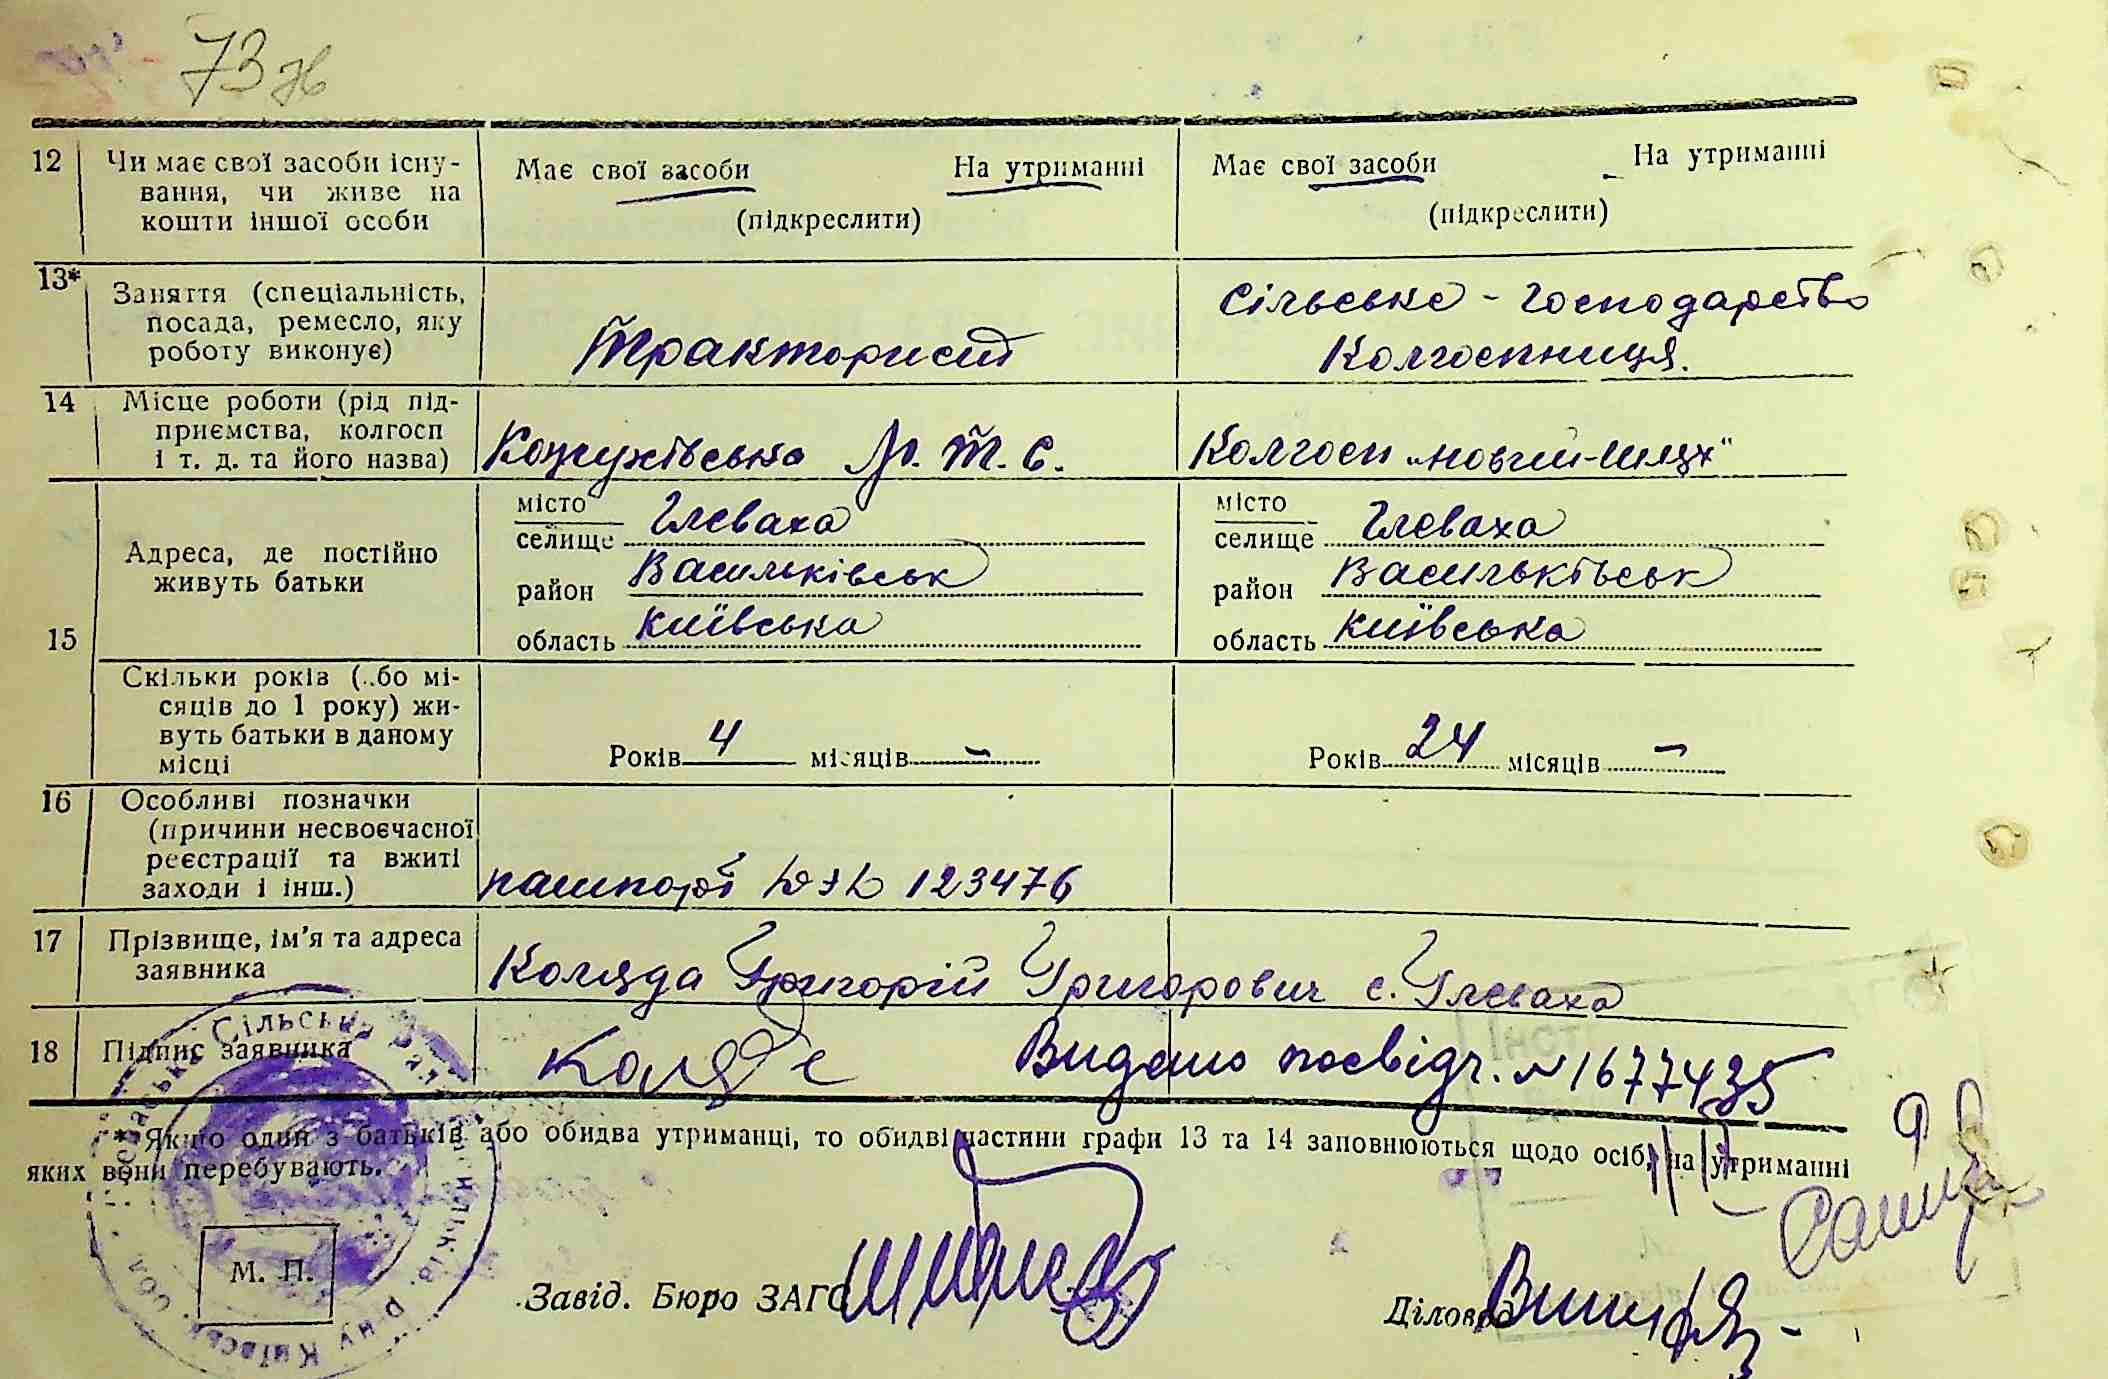 73 зв
12 Чи має свої засоби існу- Має свої засоби На утриманні Має свої засоби На утриманні
вання, чи живе на
кошти іншої особи (підкреслити) (підкреслити)
13* Заняття (спеціальність, Сільське - господарство
посада, ремесло, яку Тракторист
роботу виконує) Колгоспниця.
14 Місце роботи (рід під-
приємства, колгосп
і т. д. та його назва) Кожухівська М. Т. С. Колгосп „Новий-Шлях"
15 Адреса, де постійно
живуть батьки
місто Глеваха місто Глеваха
селище селище
район Васильківськ район Васильківськ
область Київська область Київська
Скільки років (.бо мі-
сяців до 1 року) жи-
вуть батьки в даному
місці Років 4 місяців – Років 24 місяців –
16 Особливі позначки
(причини несвоєчасної
реєстрації та вжиті
заходи і інш.) пашпорт 123476
17 Прізвище, ім'я та адреса
заявника Коляда Григорій Григорович с. Глеваха
18 Підпис заявника Коляда Видано посвідч. № 1677435
* Якщо один з батьків або обидва утриманці, то обидві частини графи 13 та 14 заповнюються щодо осіб, на утриманні
яких вони перебувають.
М. П.
Завід. Бюро ЗАГС Діловод